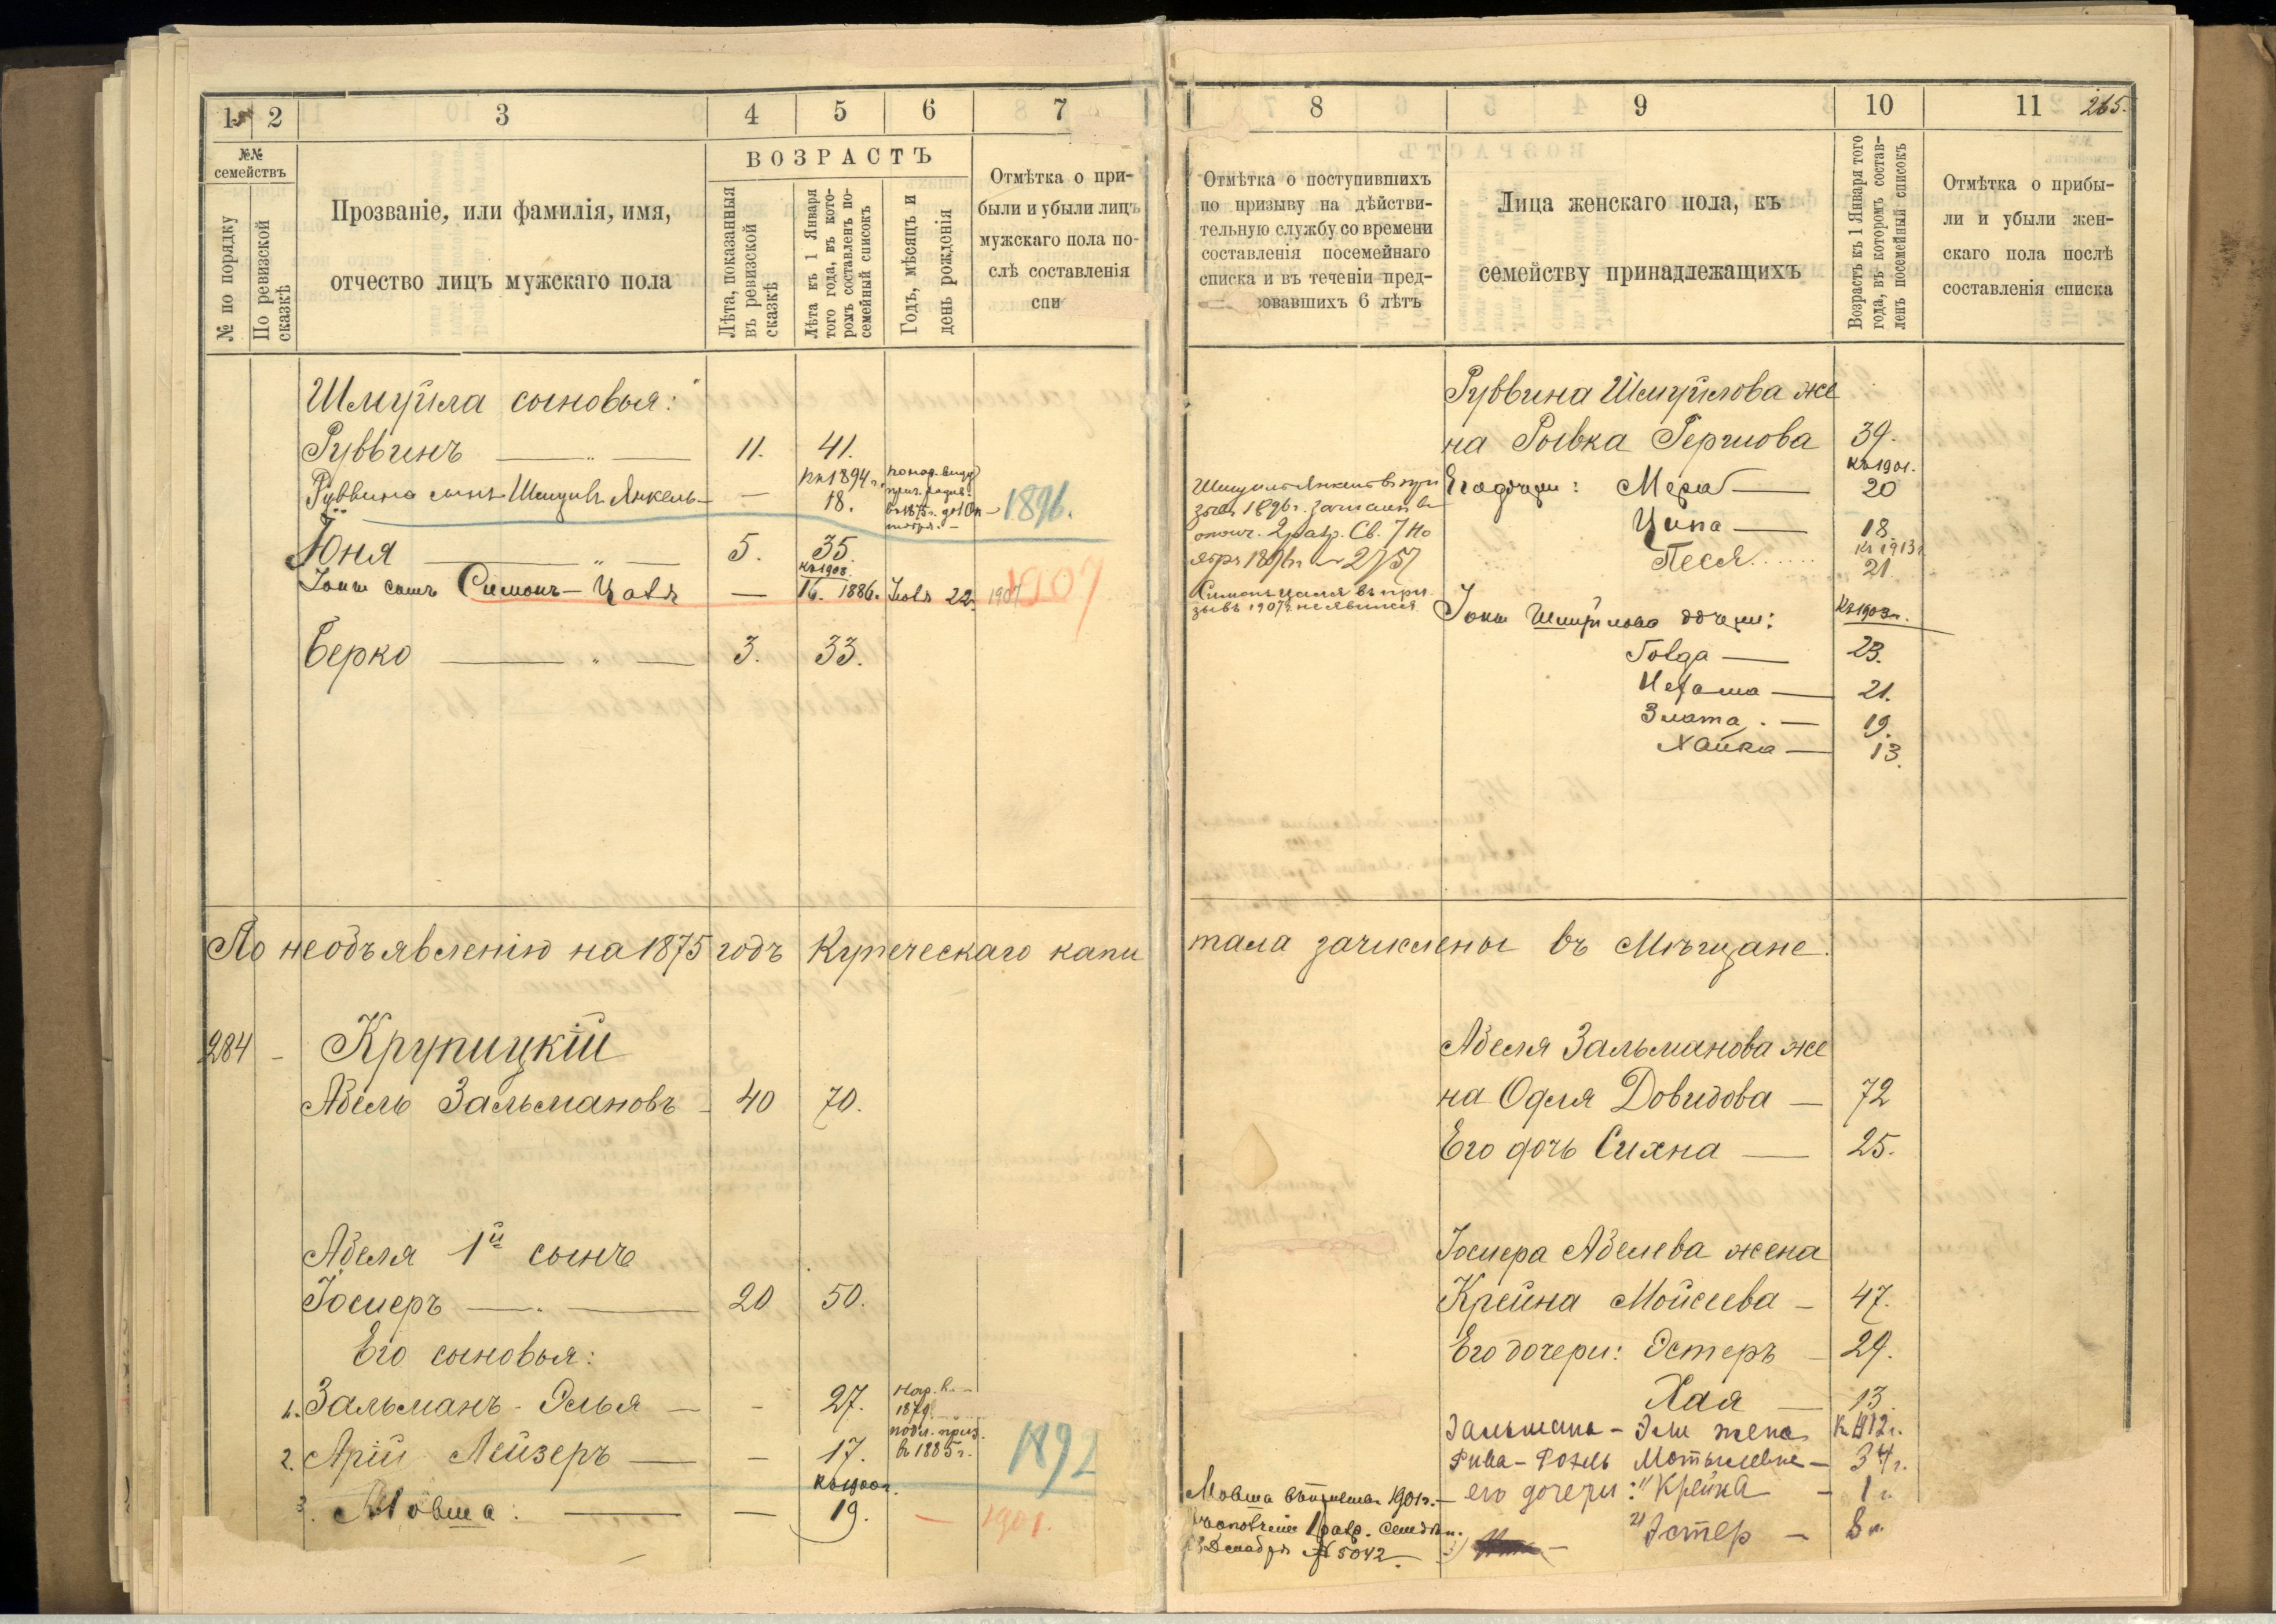 1 2 3 4 5 6 7
№№ семействъ
№ по порядку
По ревизской сказкѣ
Прозваніе, или фамилія, имя,
отчество лицъ мужскаго пола
ВОЗРАСТЪ
Лѣта, показанныя
въ ревизской
сказкѣ
Лѣта къ 1 Января
того года, въ кото-
ромъ составленъ по-
семейный списокъ
Годъ, мѣсяцъ и
день рожденія
Отмѣтка о при-
были и убыли лицъ
мужскаго пола по-
слѣ составленія
спи
Шмуйла сыновья:
Руввинъ — 11. 41.
Руввина сынъ Шмуилъ Янкель — — къ 1894 г. 18. 1896.
Юня — 5. 35.
Іоны сынъ Симонъ-Цаля — къ 1903. 16. 1886. Іюля 22. 1907 1907
Берко — 3. 33.
По необъявленію на 1875 годъ Купеческаго капи
284 - Крупицкій
Абель Зальмановъ - 40 70.
Абеля 1й сынъ
Іосперъ — 20 50.
Его сыновья:
1. Зальманъ - Элья — - 27.
2. Арій Лейзеръ — - 17. в 1885 г. 1892
3. Мовша: — — къ 1900 г. 19. — 1901.
8 9 10 11 265.
Отмѣтка о поступившихъ
по призыву на дѣйстви-
тельную службу со времени
составленія посемейнаго
списка и въ теченіи пред-
овавшихъ 6 лѣтъ
Лица женскаго пола, къ
семейству принадлежащихъ
Возрастъ къ 1 Января того
года, въ которомъ состав-
ленъ посемейный списокъ
Отмѣтка о прибы-
ли и убыли жен-
скаго пола послѣ
составленія списка
Руввина Шмуйлова же
на Рывка Гершова 39.
къ 1901.
Его дочери: Мера — 20
Ципа — 18.
къ 1913 г.
Песя...... 21
Шмуилъ Янкель въ при
зывъ 1896 г. зачислен въ
ополч. 2 разр. Св. 7 Но
ября 1896 г. № 2757
Симонъ Цаля въ при
зывъ 1907 г. не явился
Іоны Шмуйлова дочери: къ 1903 г.
Голда — 23.
Нехама — 21.
Злата. — 19.
Хайка — 13.
тала зачислены въ Мѣщане.
Абеля Зальманова же
на Одля Довидова — 72
Его дочь Сихна — 25.
Іоспера Абелева жена
Крейна Мойсеева — 47.
Его дочери: Эстеръ — 29.
Хая — 13.
Зальмана - Эли жена к 1912 г.
Рива - Рохль Мотьлевне — 34 г.
его дочери: 1) Крейна — 1 г.
2) Эстер — 8 м.
Мовша въ призывъ 1901 г. —
ополченіе 1 разр.
Декабря № 5042.